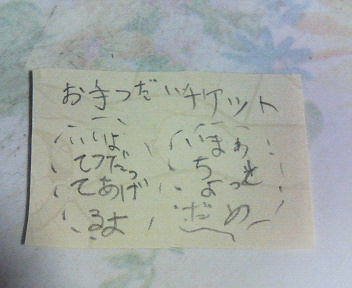 お手つだいチケット
いいよ
てつだっ
てあげ
るよ
いまぁ
ち
ょっと
だめ